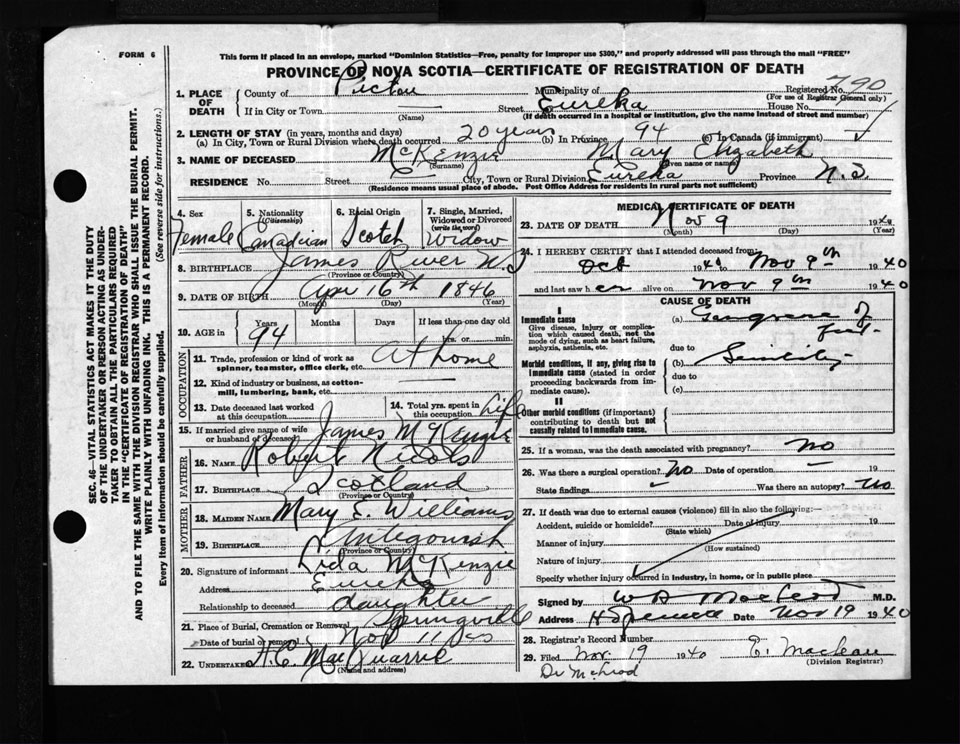 FORM 6
This form if placed in an envelope, marked "Dominion Statistics—Free, penalty for improper use $300," and properly addressed will pass through the mail "FREE"
PROVINCE OF NOVA SCOTIA—CERTIFICATE OF REGISTRATION OF DEATH
SEC. 46—VITAL STATISTICS ACT MAKES IT THE DUTY
OF THE UNDERTAKER OR PERSON ACTING AS UNDER-
TAKER TO OBTAIN ALL THE PARTICULARS REQUIRED
IN THE "CERTIFICATE OF REGISTRATION OF DEATH"
AND TO FILE THE SAME WITH THE DIVISION REGISTRAR WHO SHALL ISSUE THE BURIAL PERMIT.
WRITE PLAINLY WITH UNFADING INK. THIS IS A PERMANENT RECORD.
Every item of information should be carefully supplied. (See reverse side for instructions.)
1. PLACE OF DEATH
County of Pictou Municipality of Registered No. 790
(For use of Registrar General only)
If in City or Town (Name) Street Eureka House No.
(If death occurred in a hospital or institution, give the name instead of street and number)
2. LENGTH OF STAY (in years, months and days)
(a) In City, Town or Rural Division where death occurred 20 years (b) In Province 94 (c) In Canada (if immigrant)
3. NAME OF DECEASED McKenzie Mary Elizabeth
(Surname) (Given name or names)
RESIDENCE No. Street City, Town or Rural Division Eureka Province N.S
(Residence means usual place of abode. Post Office Address for residents in rural parts not sufficient)
4. Sex Female
5. Nationality (Citizenship) Canadian
6. Racial Origin Scotch
7. Single, Married, Widowed or Divorced (write the word) Widow
8. BIRTHPLACE James River N.S
(Province or Country)
9. DATE OF BIRTH Apr 16th 1846
(Month) (Day) (Year)
10. AGE in Years 94 Months Days If less than one day old hrs. or min.
OCCUPATION
11. Trade, profession or kind of work as spinner, teamster, office clerk, etc. At home
12. Kind of industry or business, as cotton-mill, lumbering, bank, etc.
13. Date deceased last worked at this occupation
14. Total yrs. spent in this occupation Life
15. If married give name of wife or husband of deceased James McKenzie
FATHER
16. NAME Robert Nicols
17. BIRTHPLACE Scotland
(Province or Country)
MOTHER
18. MAIDEN NAME Mary E. Williams
19. BIRTHPLACE Antegonish
(Province or Country)
20. Signature of informant Lida McKenzie
Address Eureka
Relationship to deceased daughter
21. Place of Burial, Cremation or Removal Springville
Date of burial or removal Nov 11
22. UNDERTAKER H.C. MacQuarrie
(Name and address)
MEDICAL CERTIFICATE OF DEATH
23. DATE OF DEATH Nov 9 1940
(Month) (Day) (Year)
24. I HEREBY CERTIFY that I attended deceased from:
Oct 1940 to Nov 9th 1940
and last saw her alive on Nov 9th 1940
CAUSE OF DEATH
I
Immediate cause
Give disease, injury or complication which caused death, not the mode of dying, such as heart failure, asphyxia, asthenia, etc.
(a) Gangrene of
due to
Morbid conditions, if any, giving rise to immediate cause (stated in order proceeding backwards from immediate cause).
(b) Senility
due to
(c)
II
Other morbid conditions (if important) contributing to death but not causally related to immediate cause.
25. If a woman, was the death associated with pregnancy? No
26. Was there a surgical operation? No Date of operation 19
State findings Was there an autopsy? No
27. If death was due to external causes (violence) fill in also the following:—
Accident, suicide or homicide? Date of injury 19
(State which)
Manner of injury
(How sustained)
Nature of injury
Specify whether injury occurred in industry, in home, or in public place
Signed by MacLeod M.D.
Address Date Nov 19 1940
28. Registrar's Record Number
29. Filed Nov. 19 1940 E. Maclean
(Division Registrar)
Dr McLeod